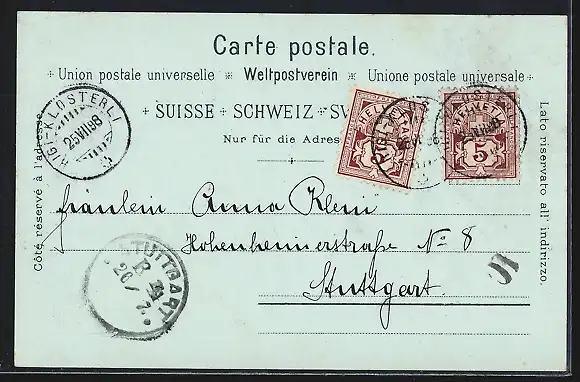 Carte postale.
Union postale universelle Weltpostverein Unione postale universale
SUISSE SCHWEIZ
Nur für die Adres
Côté réservé à l'adresse.
Lato riservato all' indirizzo.
RIGI-KLÖSTERLI
25 VII 98
HELVETIA
5
RIGI-
HELVETIA
5
Fräulein Anna Klein
Hohenheimerstraße No 8
Stuttgart.
STUTTGART
26/7